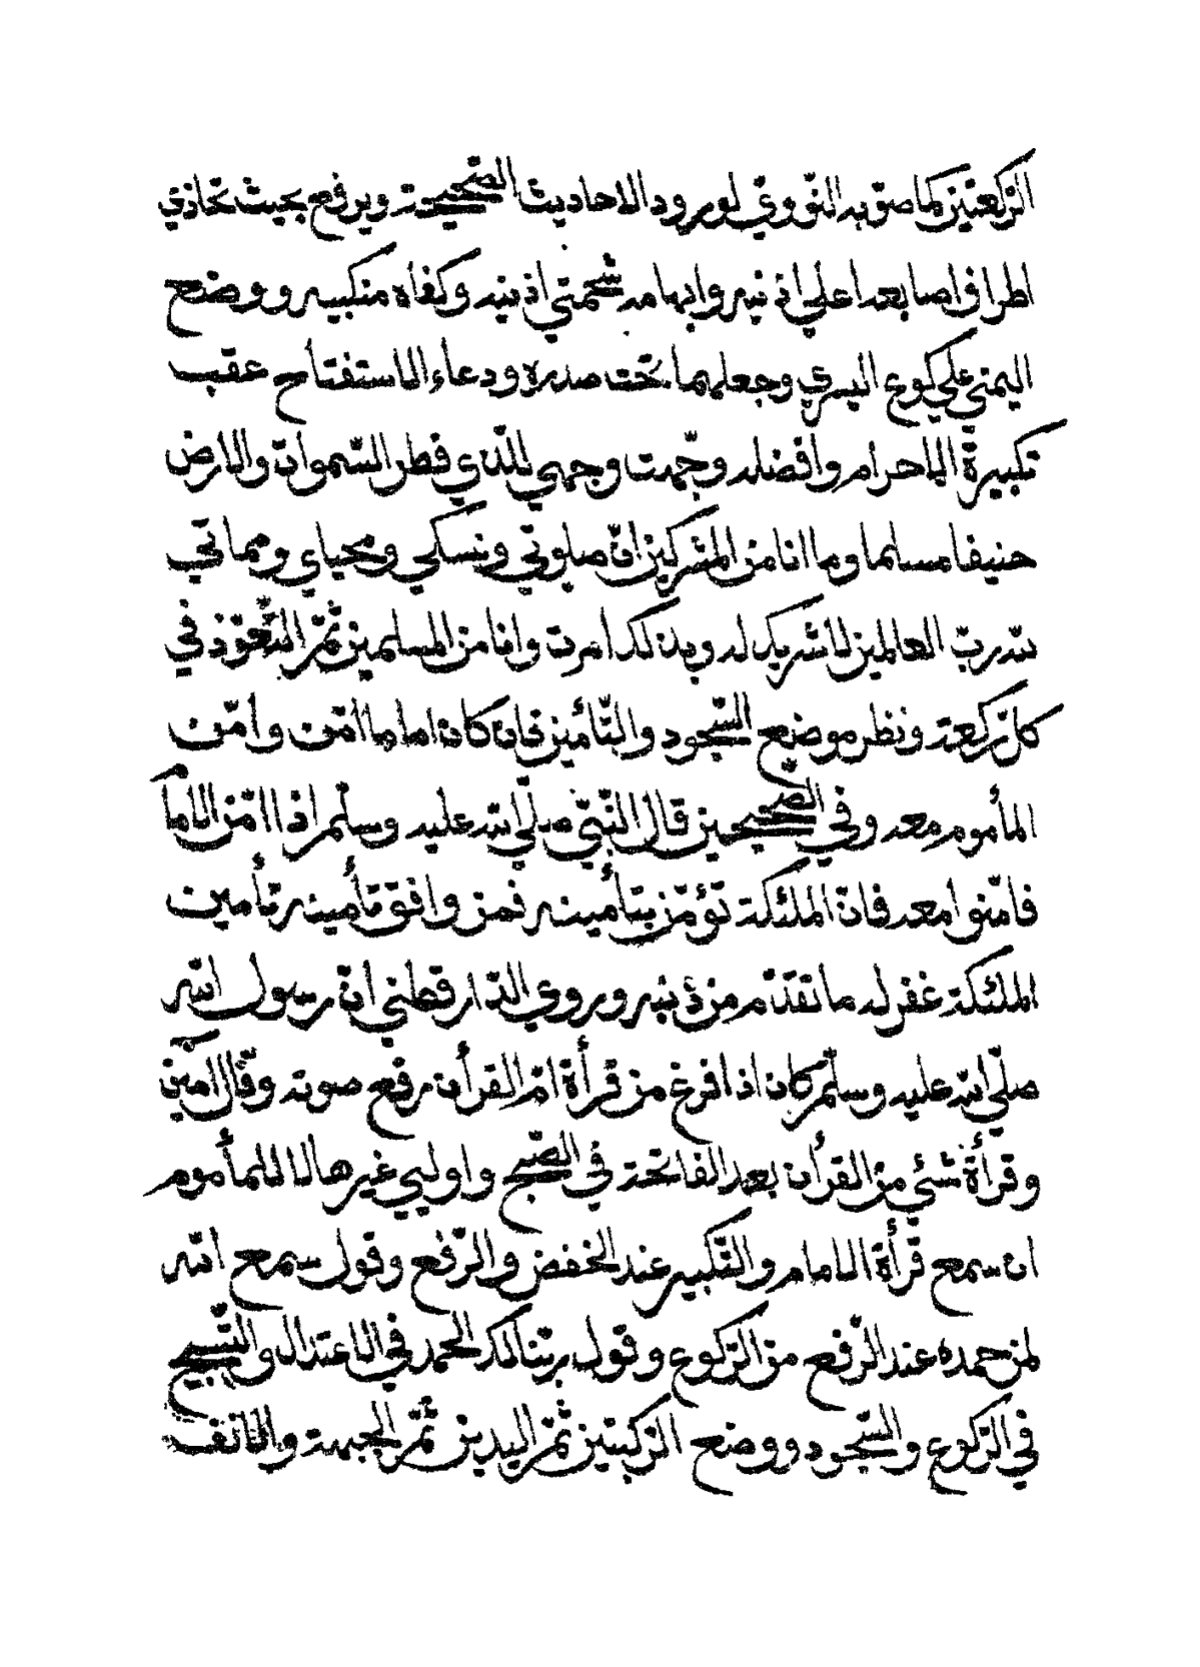 الرّكعتين كما صوّبه النّوويّ لورود الاحاديث الصّحيحة ويرفع بحيث تحاذي
اطراف اصابعه اعلي اذنيه وابهامه شحمتي اذنيه وكفاه منكبيه ووضع
اليمني علي كوع اليسري وجعلهما تحت صدره ودعاء الاستفتاح عقب
تكبيرة الاحرام وافضله وجّهت وجهي للّذي فطر السّموات والارض
حنيفا مسلما وما انا من المشركين انّ صلوتي ونسكي ومحياي ومماتي
لله ربّ العالمين لا شريك له وبذلك امرت وانا من المسلمين ثمّ التّعوّذ في
كلّ ركعة ونظر موضع السّجود والتّأمين فان كان اماما امّن وامّن
المأموم معه وفي الصّحيحين قال النّبيّ صلّي الله عليه وسلّم اذا امّن الامام
فامّنوا معه فانّ الملئكة تؤمّن بتأمينه فمن وافق تأمينه تأمين
الملئكة غفر له ما تقدّم من ذنبه وروي الدّارقطني انّ رسول الله
صلّي الله عليه وسلّم كان اذا فرغ من قرأة امّ القرأن رفع صوته وقال امين
وقرأة شئي من القرأن بعد الفاتحة في الصّبح واوليي غيرها لا للمأموم
ان سمع قرأة الامام والتّكبير عند الخفض والرّفع وقول سمع الله
لمن حمده عند الرّفع من الرّكوع وقول ربّنا لك الحمد في الاعتدال والتّسبيح
في الرّكوع والسّجود ووضع الرّكبتين ثمّ اليدين ثمّ الجبهة والانف